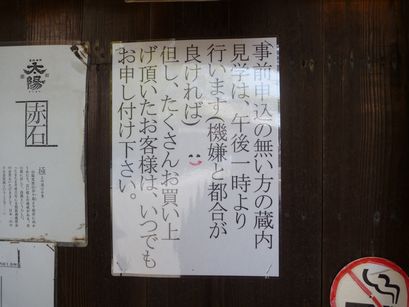 事前申込の無い方の蔵内
見学は、午後一時より
行います(機嫌と都合が
良ければ)
但し、たくさんお買い上
げ頂いたお客様は、いつでも
お申し付け下さい。
太陽
赤石